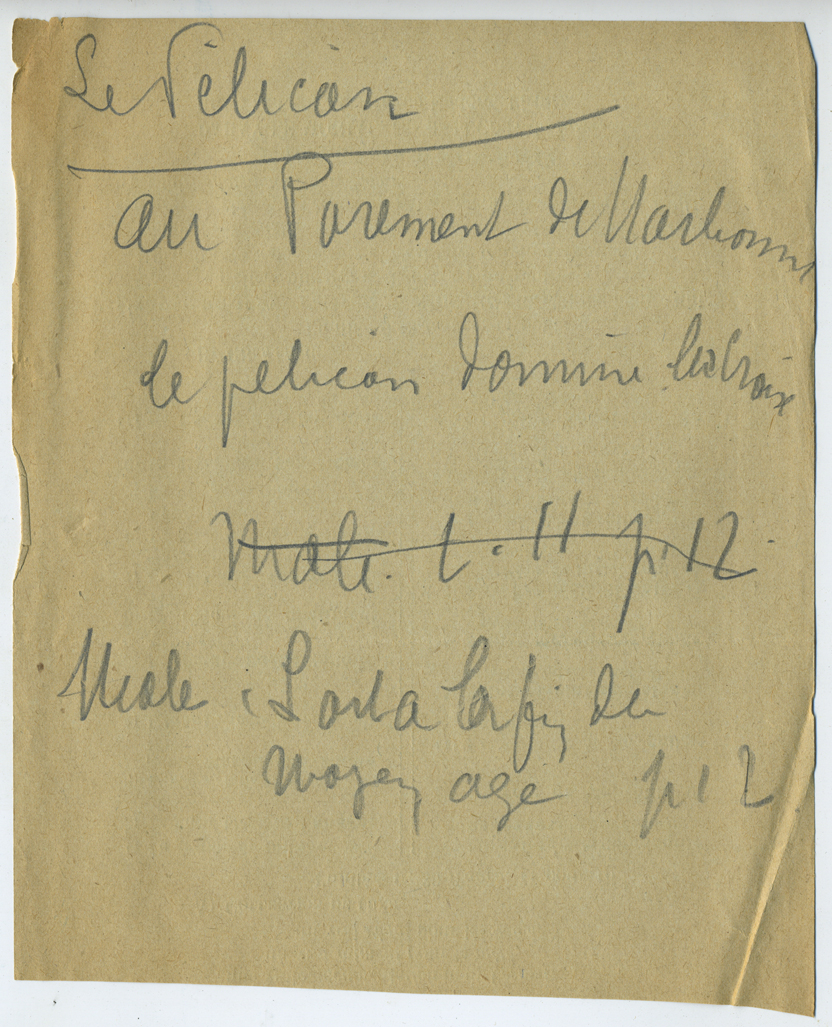 Le Pélican
au Parement de Narbonne
le pelican domine la croix
Male. t. II p. 12
Male. L'art a la fin du
moyen age p 12